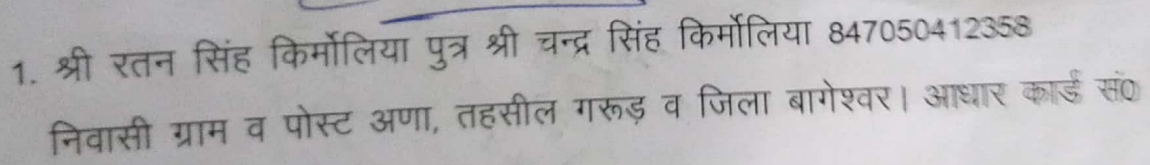 1. श्री रतन सिंह किर्मोलिया पुत्र श्री चन्द्र सिंह किर्मोलिया 847050412358
निवासी ग्राम व पोस्ट अणा, तहसील गरूड़ व जिला बागेश्वर। आधार कार्ड सं0